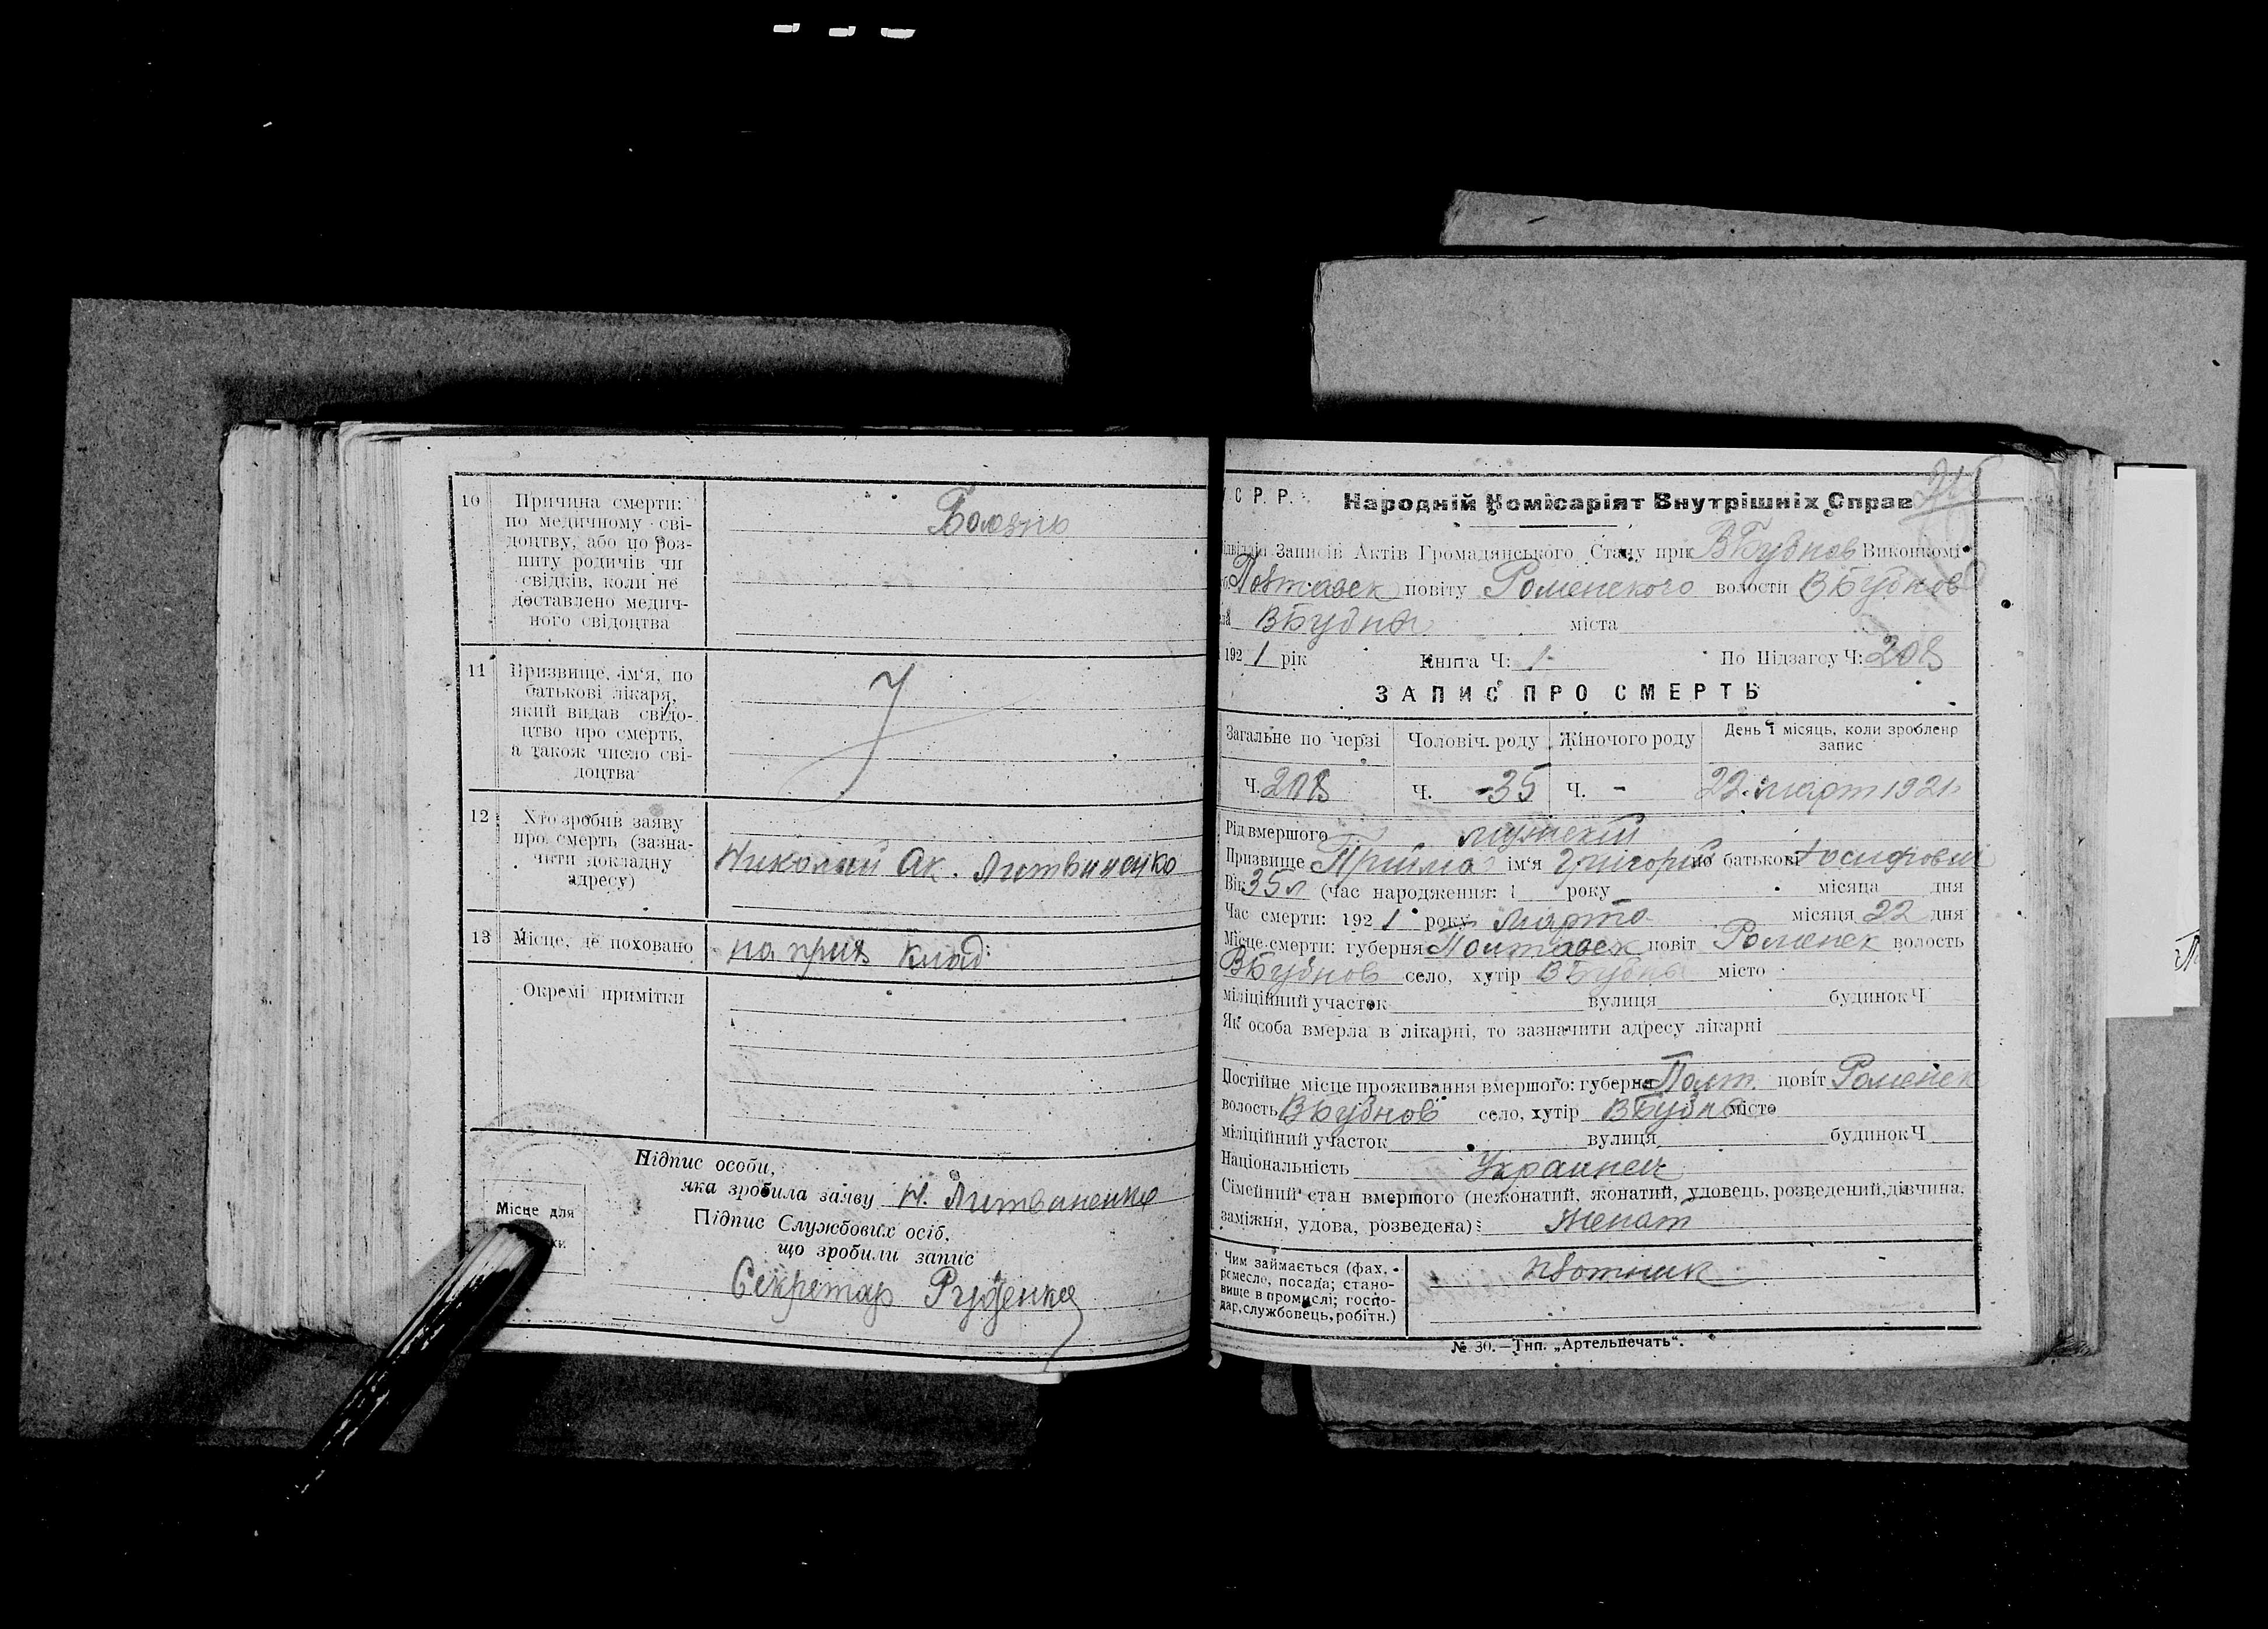 10 Причина смерти:
по медичному сві-
доцтву, або по роз-
питу родичів чи
свідків, коли не
доставлено медич-
ного свідоцтва
Болезнь
11 Призвище, ім'я, по
батькові лікаря,
який видав свідо-
цтво про смерть,
а також число сві-
доцтва
12 Хто зробив заяву
про смерть (зазна-
чити докладну
адресу)
Николай Ак. Литвиненко
13 Місце, де поховано
на прих клад:
Окремі примітки
Підпис особи,
яка зробила заяву Н. Литвиненко
Підпис Службових осіб,
що зробили запис
Місце для
Секретар Руденко
С Р. Р. Народній Комісаріят Внутрішніх Справ
Записів Актів Громадянського Стану при ВБубнов Виконкомі
Полтавск повіту Роменского волости ВБубнов
ВБубны міста
192 1 рік Книга Ч: 1 По Підзагсу Ч: 208
ЗАПИС ПРО СМЕРТЬ
Загальне по черзі Чоловіч. роду Жіночого роду День і місяць, коли зроблено запис
Ч. 208 Ч. -35 Ч. - 22 март 1921
Рід вмершого мужский
Призвище Прийма ім'я Григорий по батькові Иосифович
Вік 35 л (час народження: 1 року місяца дня
Час смерти: 192 1 року марта місяця 22 дня
Місце смерти: губерня Полтавск повіт Роменск волость
ВБубнов село, хутір ВБубны місто
міліційний участок вулиця будинок Ч
Як особа вмерла в лікарні, то зазначити адресу лікарні
Постійне місце проживання вмершого: губерня Полт. повіт Роменск
волость ВБубнов село, хутір ВБубны місто
міліційний участок вулиця будинок Ч
Національність Украинец
Сімейний стан вмершого (нежонатий, жонатий, удовець, розведений, дівчина,
заміжня, удова, розведена): Женат
Чим займається (фах,
ремесло, посада; стано-
вище в промислі; госпо-
дар, службовець, робітн.)
плотник
№ 30.—Тип. „Артельпечать".